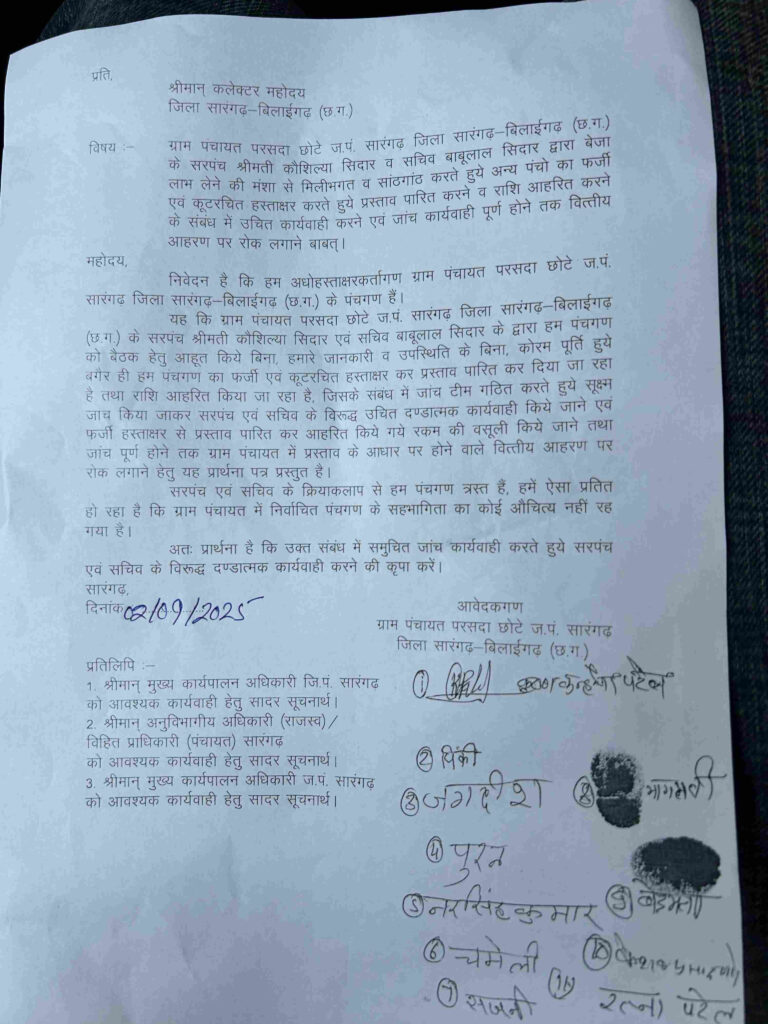 प्रति,
श्रीमान् कलेक्टर महोदय
जिला सारंगढ़–बिलाईगढ़ (छ.ग.)
विषय :– ग्राम पंचायत परसदा छोटे ज.पं. सारंगढ़ जिला सारंगढ़–बिलाईगढ़ (छ.ग.)
के सरपंच श्रीमती कौशिल्या सिदार व सचिव बाबूलाल सिदार द्वारा बेजा
लाभ लेने की मंशा से मिलीभगत व सांठगांठ करते हुये अन्य पंचो का फर्जी
एवं कूटरचित हस्ताक्षर करते हुये प्रस्ताव पारित करने व राशि आहरित करने
के संबध में उचित कार्यवाही करने एवं जांच कार्यवाही पूर्ण होने तक वित्तीय
आहरण पर रोक लगाने बाबत्।
महोदय,
निवेदन है कि हम अधोहस्ताक्षरकर्तागण ग्राम पंचायत परसदा छोटे ज.पं.
सारंगढ़ जिला सारंगढ़–बिलाईगढ़ (छ.ग.) के पंचगण हैं।
यह कि ग्राम पंचायत परसदा छोटे ज.पं. सारंगढ़ जिला सारंगढ़–बिलाईगढ़
(छ.ग.) के सरपंच श्रीमती कौशिल्या सिदार एवं सचिव बाबूलाल सिदार के द्वारा हम पंचगण
को बैठक हेतु आहूत किये बिना, हमारे जानकारी व उपस्थिति के बिना, कोरम पूर्ति हुये
बगैर ही हम पंचगण का फर्जी एवं कूटरचित हस्ताक्षर कर प्रस्ताव पारित कर दिया जा रहा
है तथा राशि आहरित किया जा रहा है, जिसके संबंध में जांच टीम गठित करते हुये सूक्ष्म
जाच किया जाकर सरपंच एवं सचिव के विरूद्ध उचित दण्डात्मक कार्यवाही किये जाने एवं
फर्जी हस्ताक्षर से प्रस्ताव पारित कर आहरित किये गये रकम की वसूली किये जाने तथा
जांच पूर्ण होने तक ग्राम पंचायत में प्रस्ताव के आधार पर होने वाले वित्तीय आहरण पर
रोक लगाने हेतु यह प्रार्थना पत्र प्रस्तुत है।
सरपंच एवं सचिव के क्रियाकलाप से हम पंचगण त्रस्त हैं, हमें ऐसा प्रतित
हो रहा है कि ग्राम पंचायत में निर्वाचित पंचगण के सहभागिता का कोई औचित्य नहीं रह
गया है।
अतः प्रार्थना है कि उक्त संबंध में समुचित जांच कार्यवाही करते हुये सरपंच
एवं सचिव के विरूद्ध दण्डात्मक कार्यवाही करने की कृपा करें।
सारंगढ़,
दिनांक 02/09/2025
आवेदकगण
ग्राम पंचायत परसदा छोटे ज.पं. सारंगढ़
जिला सारंगढ़–बिलाईगढ़ (छ.ग.)
प्रतिलिपि :–
1. श्रीमान् मुख्य कार्यपालन अधिकारी जि.पं. सारंगढ़
को आवश्यक कार्यवाही हेतु सादर सूचनार्थ।
2. श्रीमान् अनुविभागीय अधिकारी (राजस्व)/
विहित प्राधिकारी (पंचायत) सारंगढ़
को आवश्यक कार्यवाही हेतु सादर सूचनार्थ।
3. श्रीमान् मुख्य कार्यपालन अधिकारी ज.पं. सारंगढ़
को आवश्यक कार्यवाही हेतु सादर सूचनार्थ।
① कन्हैया पटेल
② पिंकी
③ जगदीश
④ पुरन
⑤ नरसिंह कुमार
⑥ चमेली
⑦ सजनी
⑧
⑨
⑩
⑪ रत्ना पटेल